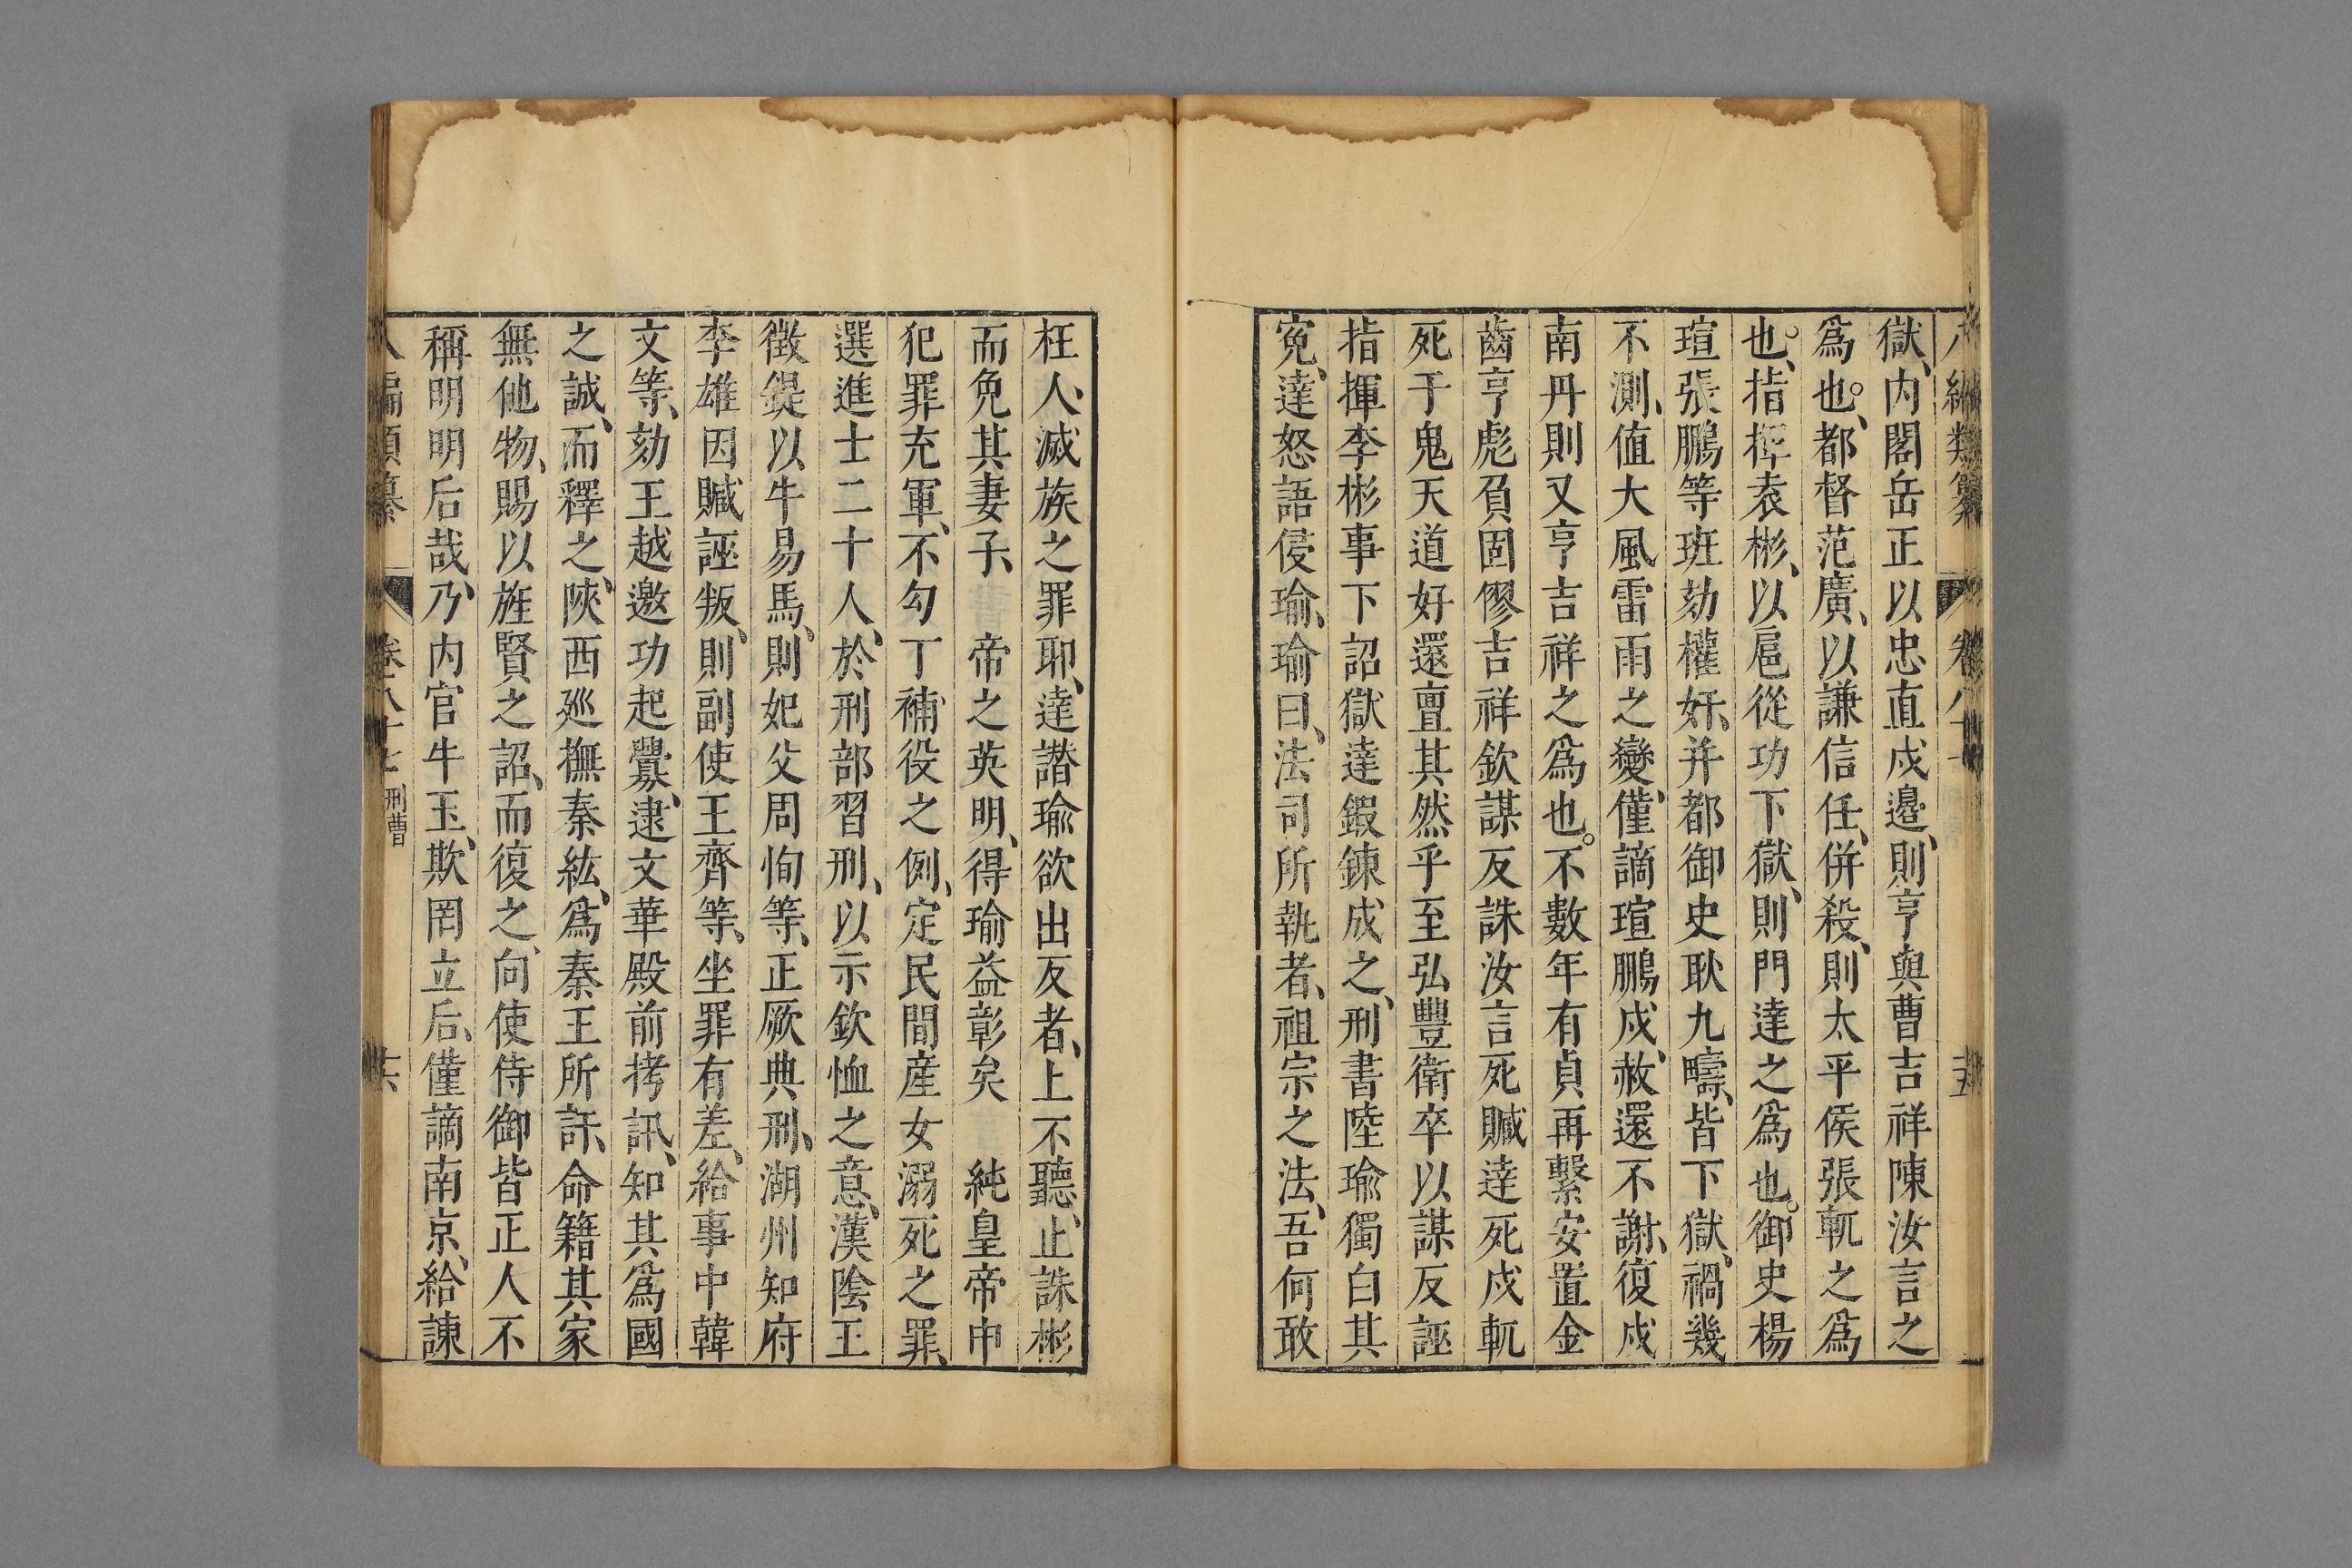 獄、内閣岳正以忠直戍邉、則亨與曹吉祥陳汝言之
爲也。、都督范廣、以謙信任、併殺、則太平侯張軏之爲
也。、指揮袁彬、以扈從功下獄、則門達之爲也。御史楊
瑄張鵬等班劾權奸、并都御史耿九疇、皆下獄、禍幾
不測、値大風雷雨之變、僅謫瑄鵬戍、赦還不謝、復戍
南丹則又亨吉祥之爲也。不數年有貞再繫安置金
齒亨彪負固僇吉祥欽謀反誅汝言死贓逹死戍軏
死于鬼天道好還亶其然乎至弘豐衛卒以謀反誣
指揮李彬事下詔獄達鍜鍊成之、刑書陸瑜獨白其
寃、達怒語侵瑜、瑜曰、法司所執者、祖宗之法、吾何敢
枉人、滅族之罪耶、達譖瑜欲出反者、上不聽、止誅彬
而免其妻子、帝之英明、得瑜益彰矣 純皇帝申
犯罪充軍、不勾丁補役之例、定民間産女溺死之罪、
選進士二十人、於刑部習刑、以示欽恤之意、漢陰王
徵鍉以牛易馬、則妃父周恂等、正厥典刑、湖州知府
李雄因贓誣叛、則副使王齊等、坐罪有差、給事中韓
文等、劾王越邀功起釁、逮文華殿前拷訊、知其爲國
之誠、而釋之、陝西廵撫秦紘、爲秦王所訐、命籍其家
無他物、賜以旌賢之詔、而復之、向使侍御皆正人不
稱明明后哉、乃内官牛玉、欺罔立后、僅謫南京、給諫
八編類纂 卷八十七 刑曹 廿六